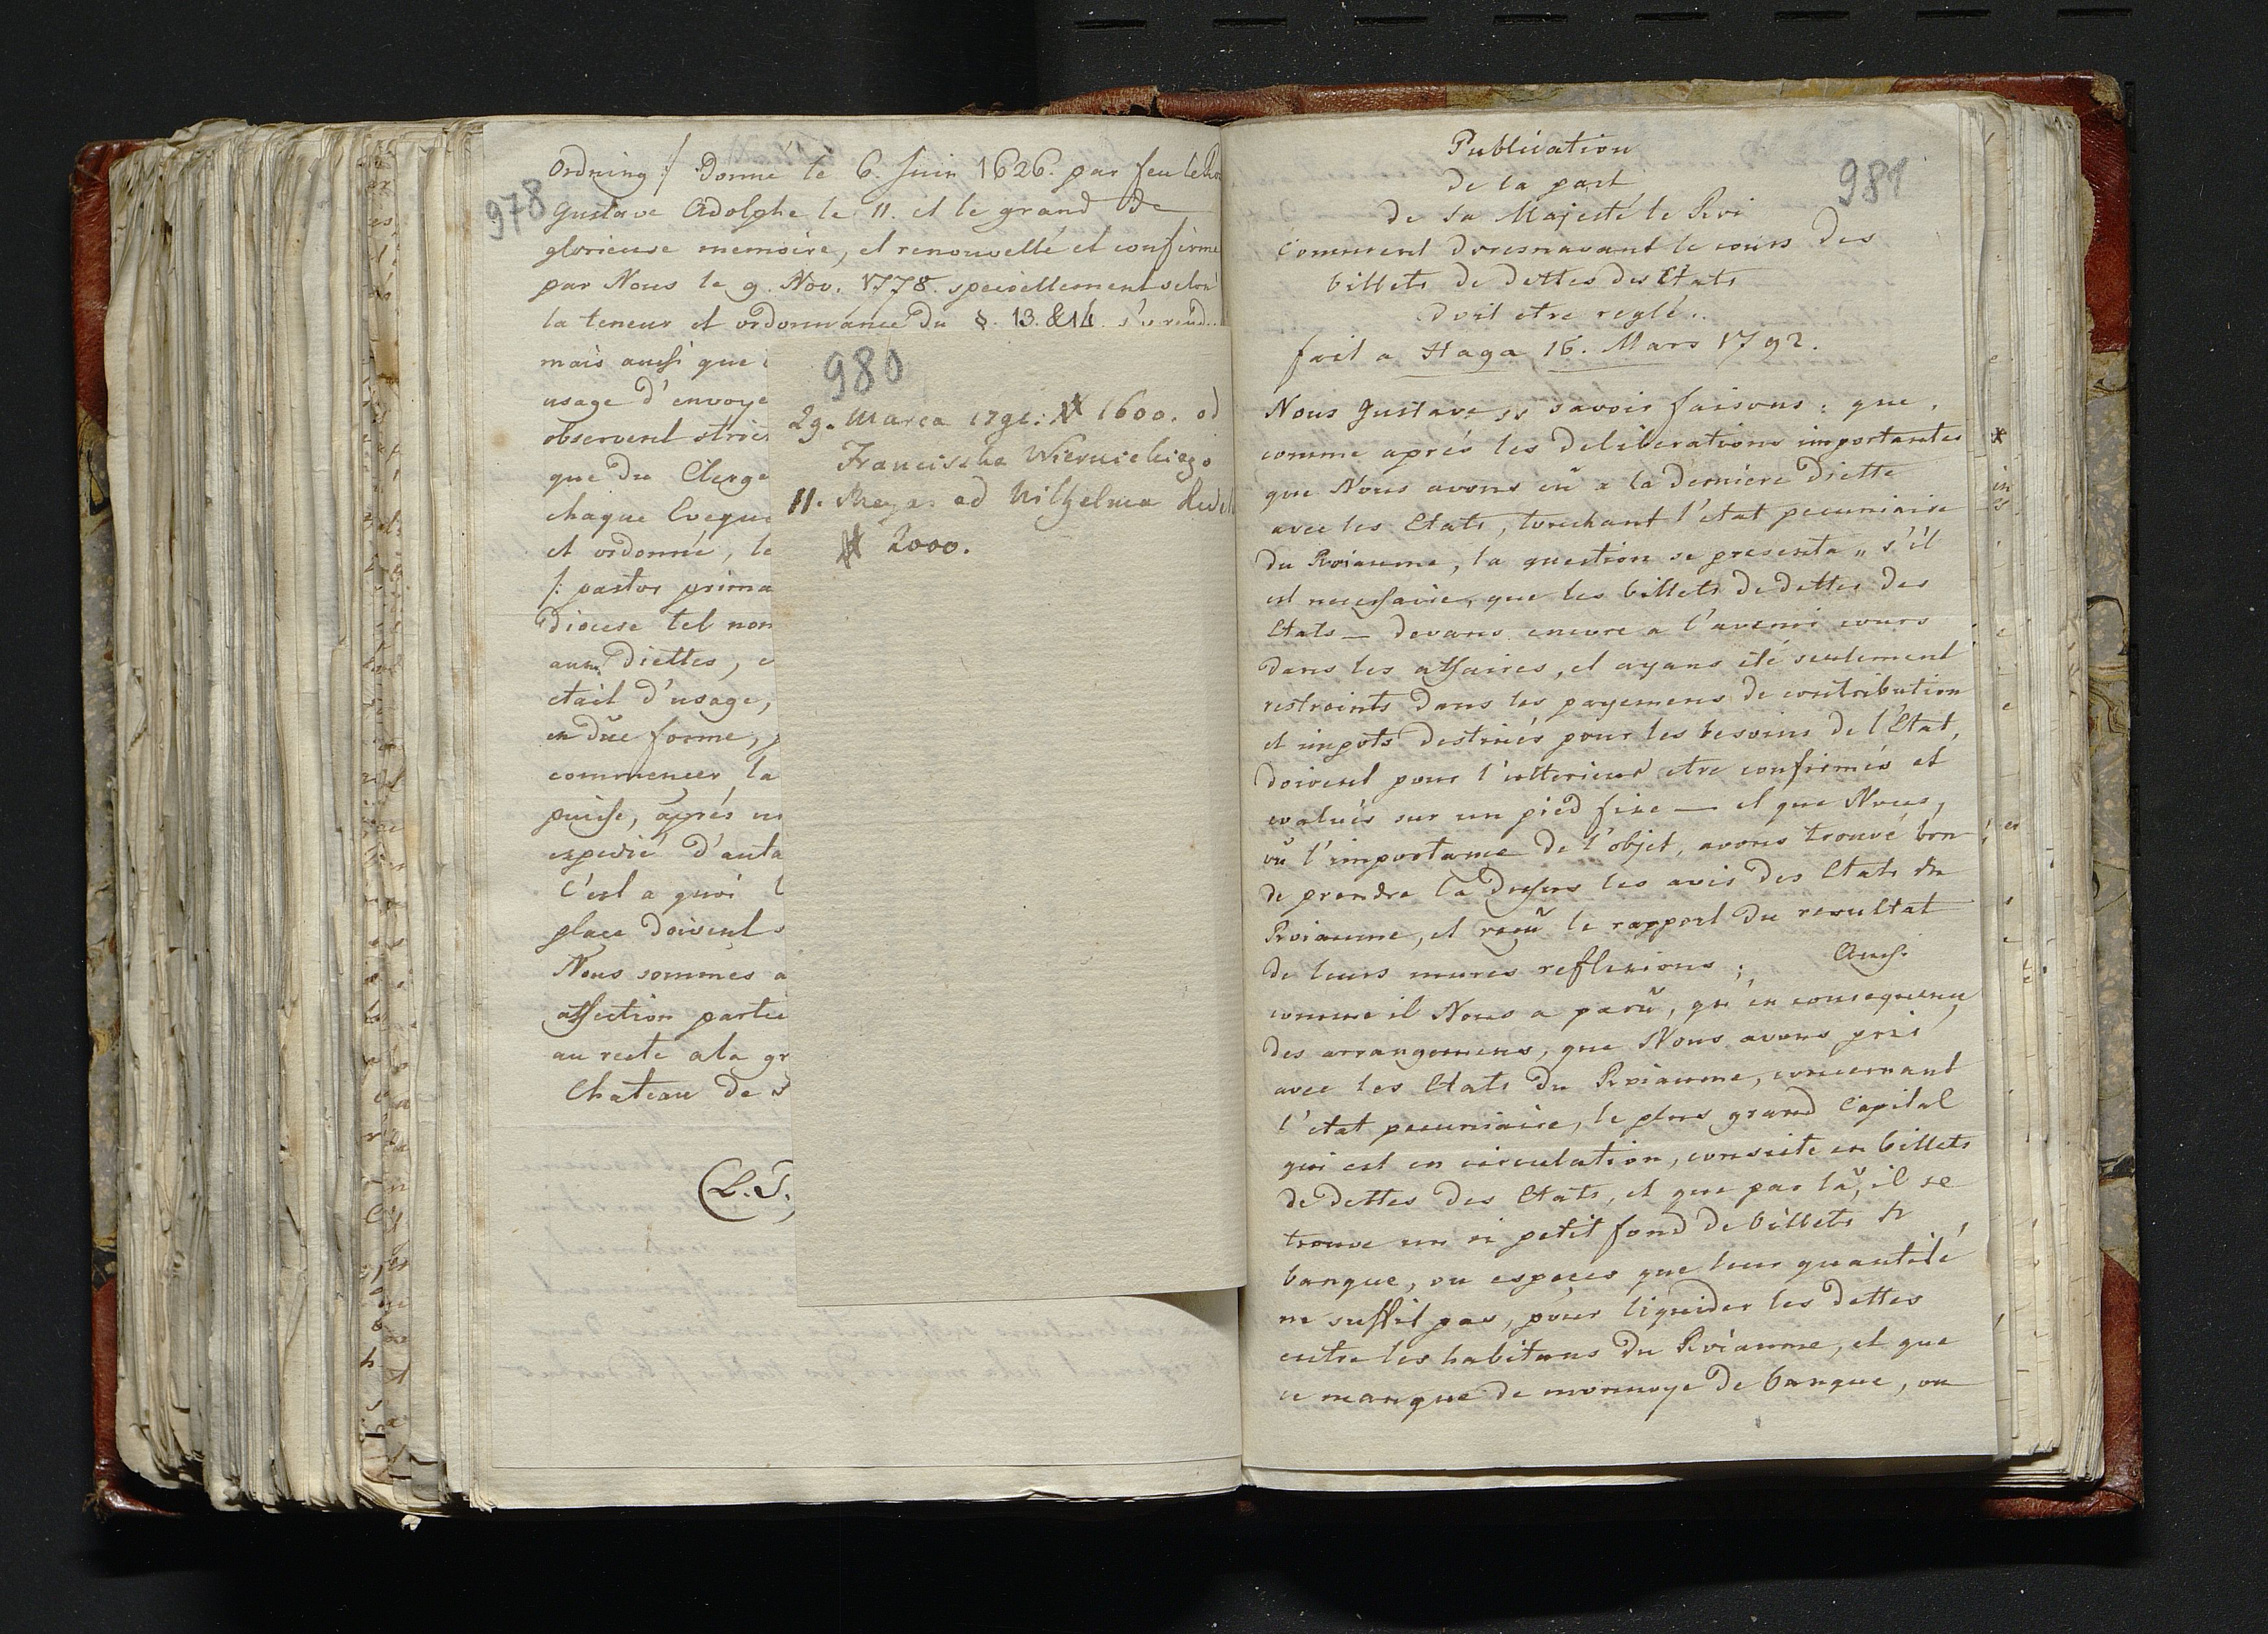 978
Ordning :/ Donné le 6. Juin 1626. par feu le Roi
Gustave Adolphe le II. et le grand de
glorieuse memoire, et renouvellé et confirmé
par Nous le 9. Nov. 1778. speciellement selon
la teneur et ordonnance du §. 13. & 14.
mais aussi que
usage d'envoye
observent stric
que du Clerge
chaque Eveque
et ordonné, le
/: pastor prima
diocese tel nom
aux Diettes, e
etait d'usage,
en düe forme, p
commencer la
puisse, aprés un
expedié d'auta
C'est a quoi l
place doivent s
Nous sommes a
affection partic
au reste a la gr
Chateau de S
(L.S.)
980
29. Marca 1791. # 1600. od
Franciszka Wiernickiego
11. Maja od Wilhelma
# 2000.
981
Publication
de la part
de Sa Majesté le Roi
Comment doresnavant le cours des
billets de dettes des Etats
doit etre reglé.
fait a Haga 16. Mars 1792.
Nous Gustave savoir faisons: que,
comme aprés les deliberations importantes
que Nous avons eû a la derniere Diette
avec les Etats, touchant l'etat pecuniaire
du Roiaume, la question se presenta „ s'il
est necessaire, que les billets de dettes des
Etats — devans encore a l'avenir cours
dans les affaires, et ayans été seulement
restraints dans les payemens de contribution
et impots destinés pour les besoins de l'Etat,
doivent pour l'ulterieur etre confirmés et
evalués sur un pied fixe — et que Nous,
vû l'importance de l'objet, avons trouvé bon
de prendre la dessus les avis des Etats du
Roiaume, et reçû le rapport du resultat
de leurs mures reflexions; Aussi
comme il Nous a parû, qu'en consequence
des arrangemens, que Nous avons pris
avec les Etats du Roiaume, concernant
l'etat pecuniaire, le plus grand Capital
qui est en circulation, consiste en billets
de dettes des Etats, et que par là, il se
trouve un si petit fond de billets de
banque, ou especes que leur quantité
ne suffit pas, pour liquider les dettes
entre les habitans du Roiaume, et que
ce manque de monnoye de banque, ou